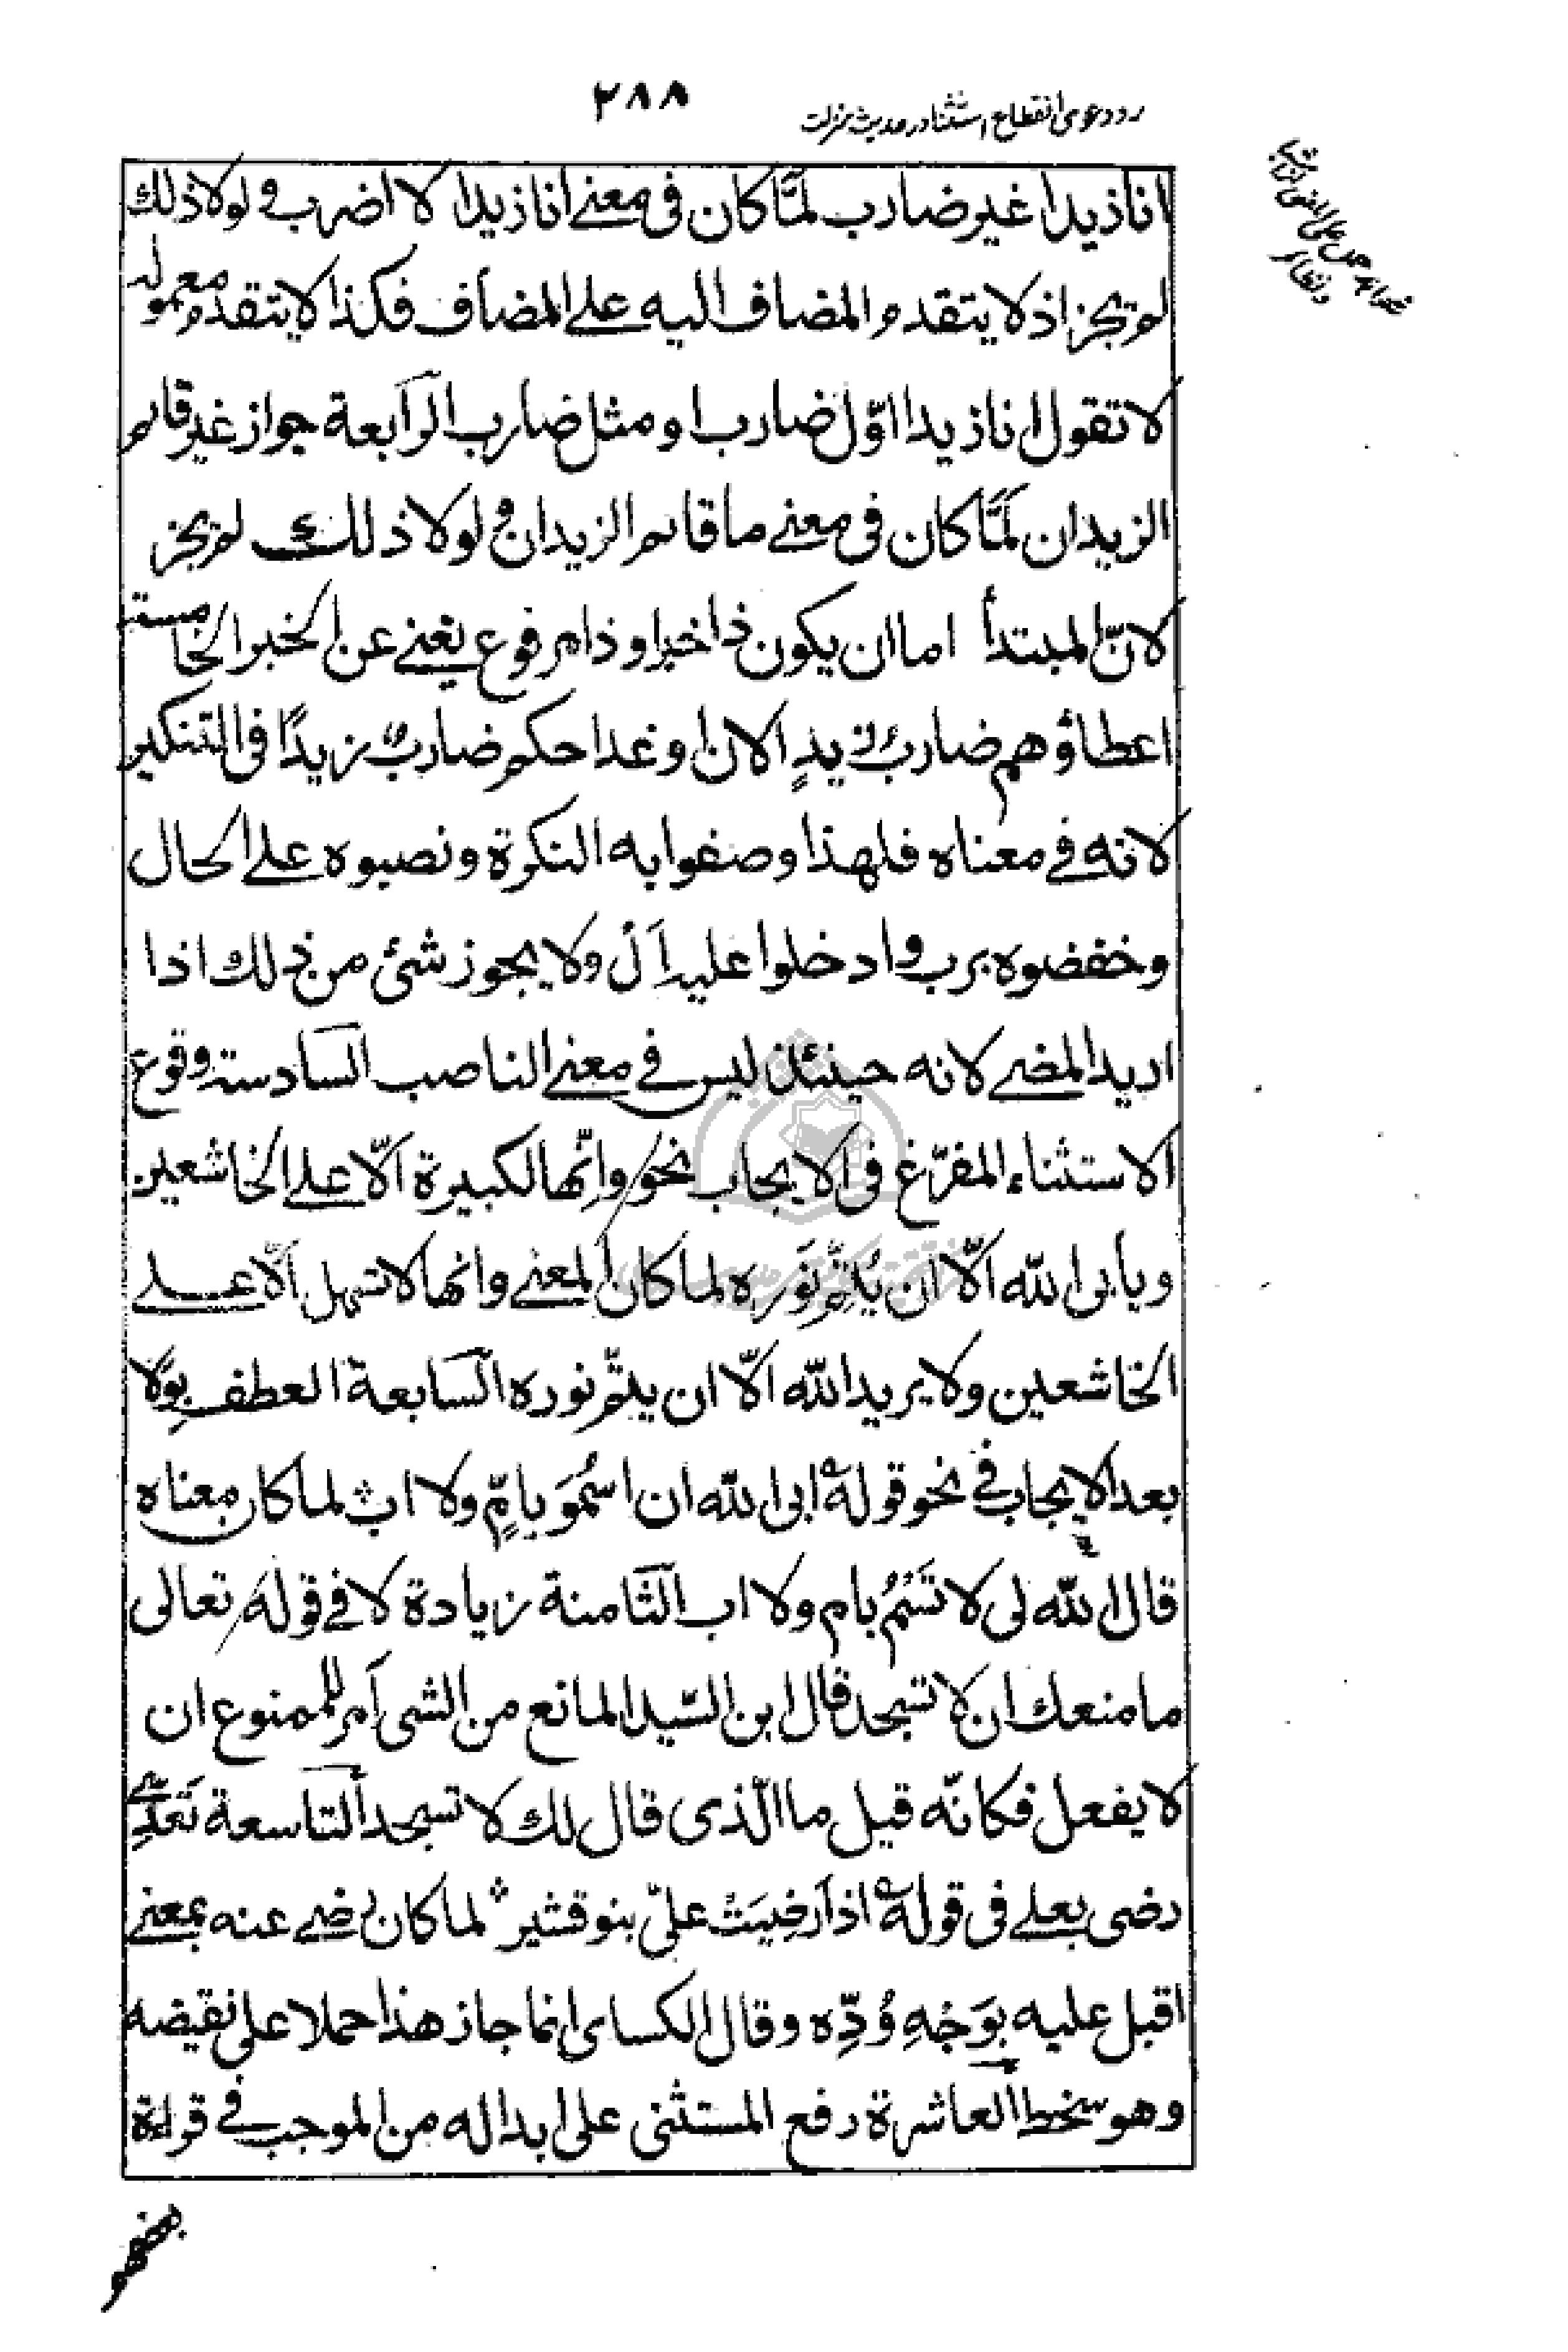 ۲۸۸
رد دعوی انقطاع استثنا در حدیث منزلت
انا زيدا غير ضارب لمّا كان فى معنى انا زيدا لا اضرب و لولا ذلك
لم يجز اذ لا يتقدم المضاف اليه على المضاف فكذا لا يتقدم معموله
لا تقول انا زيدا اوّل ضارب او مثل ضارب الرابعة جواز غير قائم
الزيدان لمّا كان فى معنى ما قائم الزيدان و لولا ذلك لم يجز
لانّ المبتدأ اما ان يكون ذا خبر او ذا مرفوع يغنى عن الخبر الخامسة
اعطاؤهم ضاربُ زيدٍ الان او غدا حكم ضاربٌ زيدًا فى التنكير
لانه فى معناه فلهذا وصفوا به النكرة ونصبوه على الحال
وخفضوه برب وادخلوا عليه اَل ولا يجوز شئ من ذلك اذا
اريد المضى لانه حينئذ ليس فى معنى الناصب السادسة وقوع
الاستثناء المفرّغ فى الايجاب نحو وانّها لكبيرة الّا على الخاشعين
ويأبى الله الّا ان يُتِمَّ نُوره لما كان المعنى وانها لا تسهل الّا على
الخاشعين ولا يريد الله الّا ان يتمّ نوره السابعة العطف بِوَلا
بعد الايجاب فى نحو قوله ابى الله ان اسْمُوَ بامٍّ ولا اب لما كان معناه
قال الله لى لا تَسْمُ بام ولا اب الثامنة زيادة لا فى قوله تعالى
ما منعك ان لا تسجد قال ابن السّيد المانع من الشى آمر للممنوع ان
لا يفعل فكانّه قيل ما الّذى قال لك لا تسجد التاسعة تَعَدِّى
رضى بعلى فى قوله اذا رَضِيَتْ علىّ بنو قشير لما كان رضى عنه بمعنى
اقبل عليه بوَجْهِ وُدِّه وقال الكساى انما جاز هذا حملا على نقيضه
وهو سخط العاشرة رفع المستثنى على ابداله من الموجب فى قراءة
بعضهم